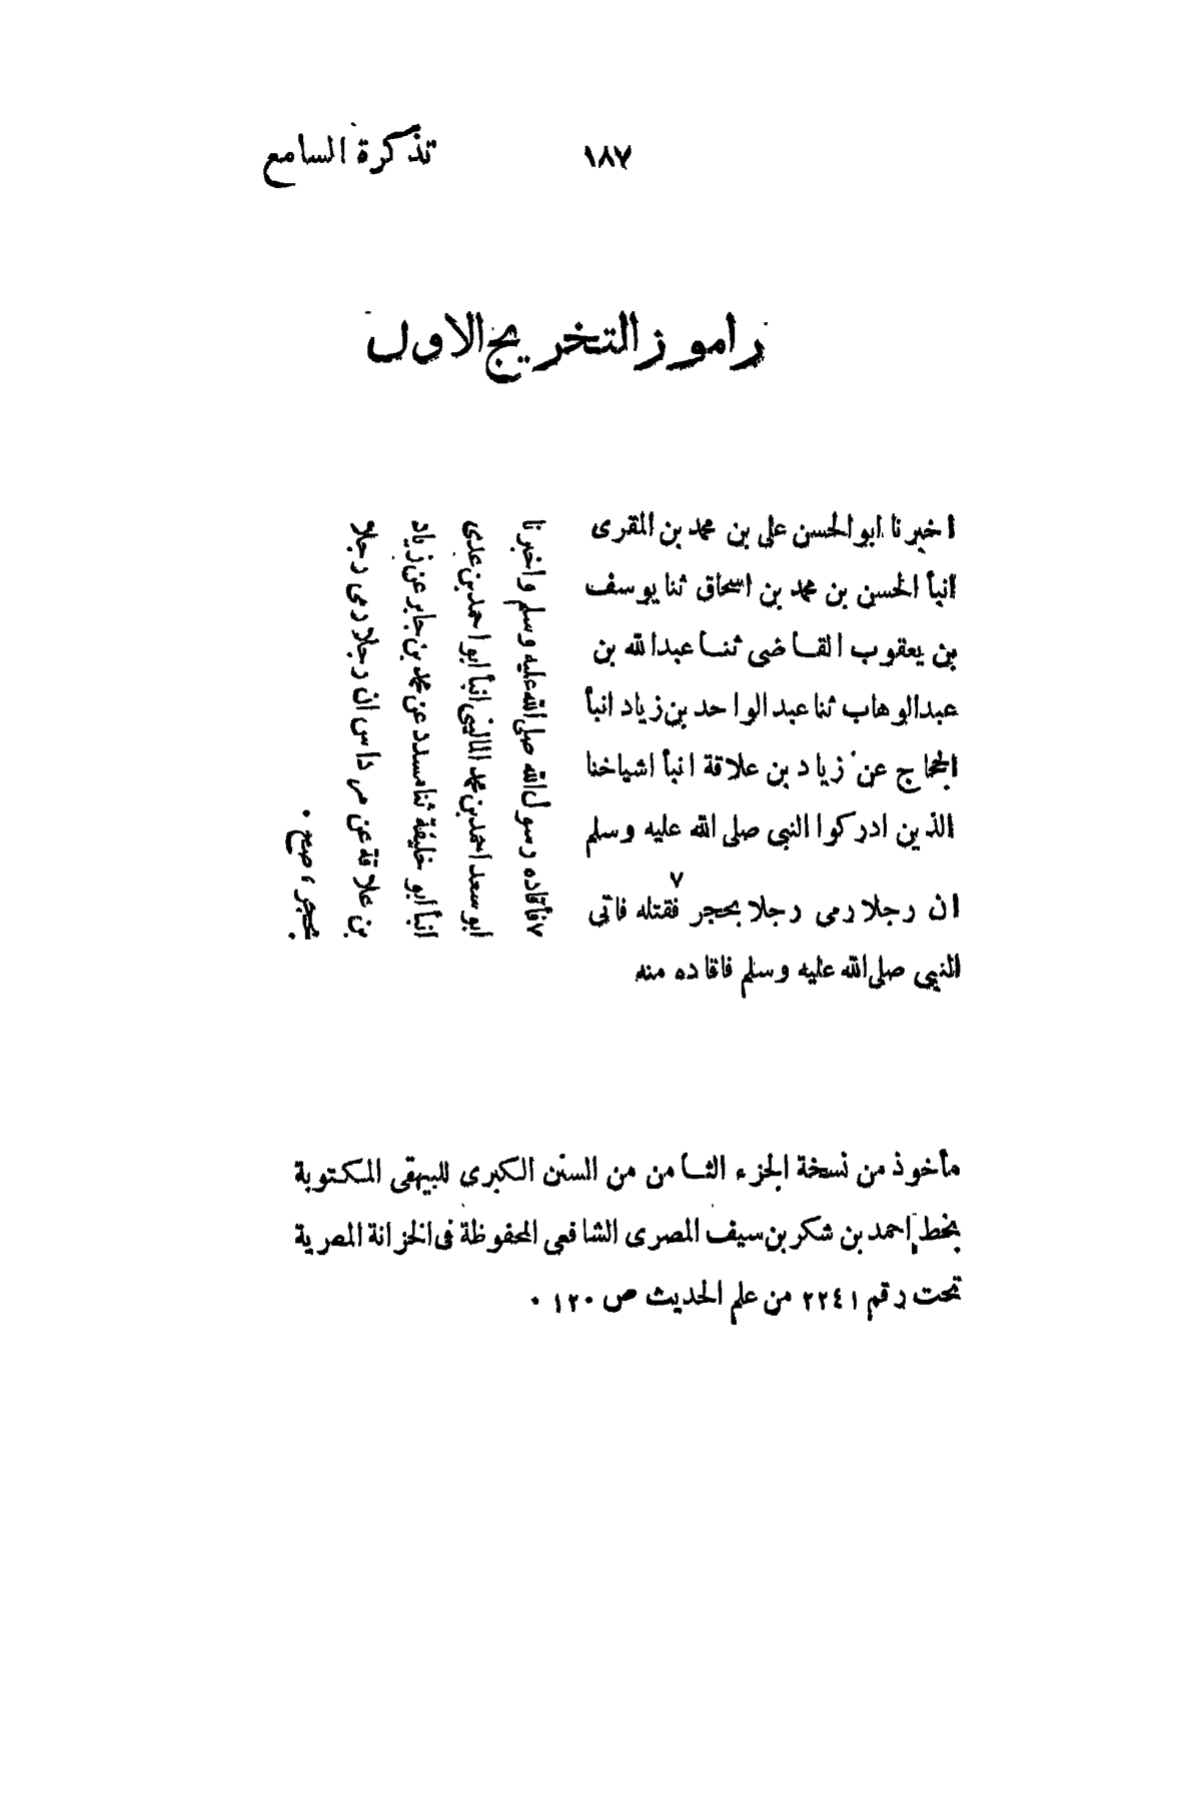 ١٨٧ تذكرة السامع
راموز التخريج الاول
اخبرنا ابو الحسن على بن محمد بن المقرى
انبأ الحسن بن محمد بن اسحاق ثنا يوسف
بن يعقوب القاضى ثنا عبدالله بن
عبدالوهاب ثنا عبد الواحد بن زياد انبأ
الحجاج عن زياد بن علاقة انبأ اشياخنا
الذين ادركوا النبى صلى الله عليه وسلم
٧
ان رجلا رمى رجلا بحجر فقتله فاتى
النبى صلى الله عليه وسلم فاقاده منه
٧ فأقاده رسول الله صلى الله عليه وسلم واخبرنا
ابو سعد احمد بن محمد المالينى انبأ ابو احمد بن عدى
انبأ ابو خليفة ثنا مسدد عن محمد بن جابر عن زياد
بن علاقة عن مرداس ان رجلا رمى رجلا
بحجر ، صح ٠
مأخوذ من نسخة الجزء الثامن من السنن الكبرى للبيهقى المكتوبة
بخط احمد بن شكر بن سيف المصرى الشافعى المحفوظة فى الخزانة المصرية
تحت رقم ٢٢٤١ من علم الحديث ص ١٢٠ ٠